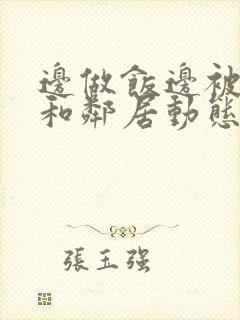 邊做飯邊被
和鄰居動態
張玉强